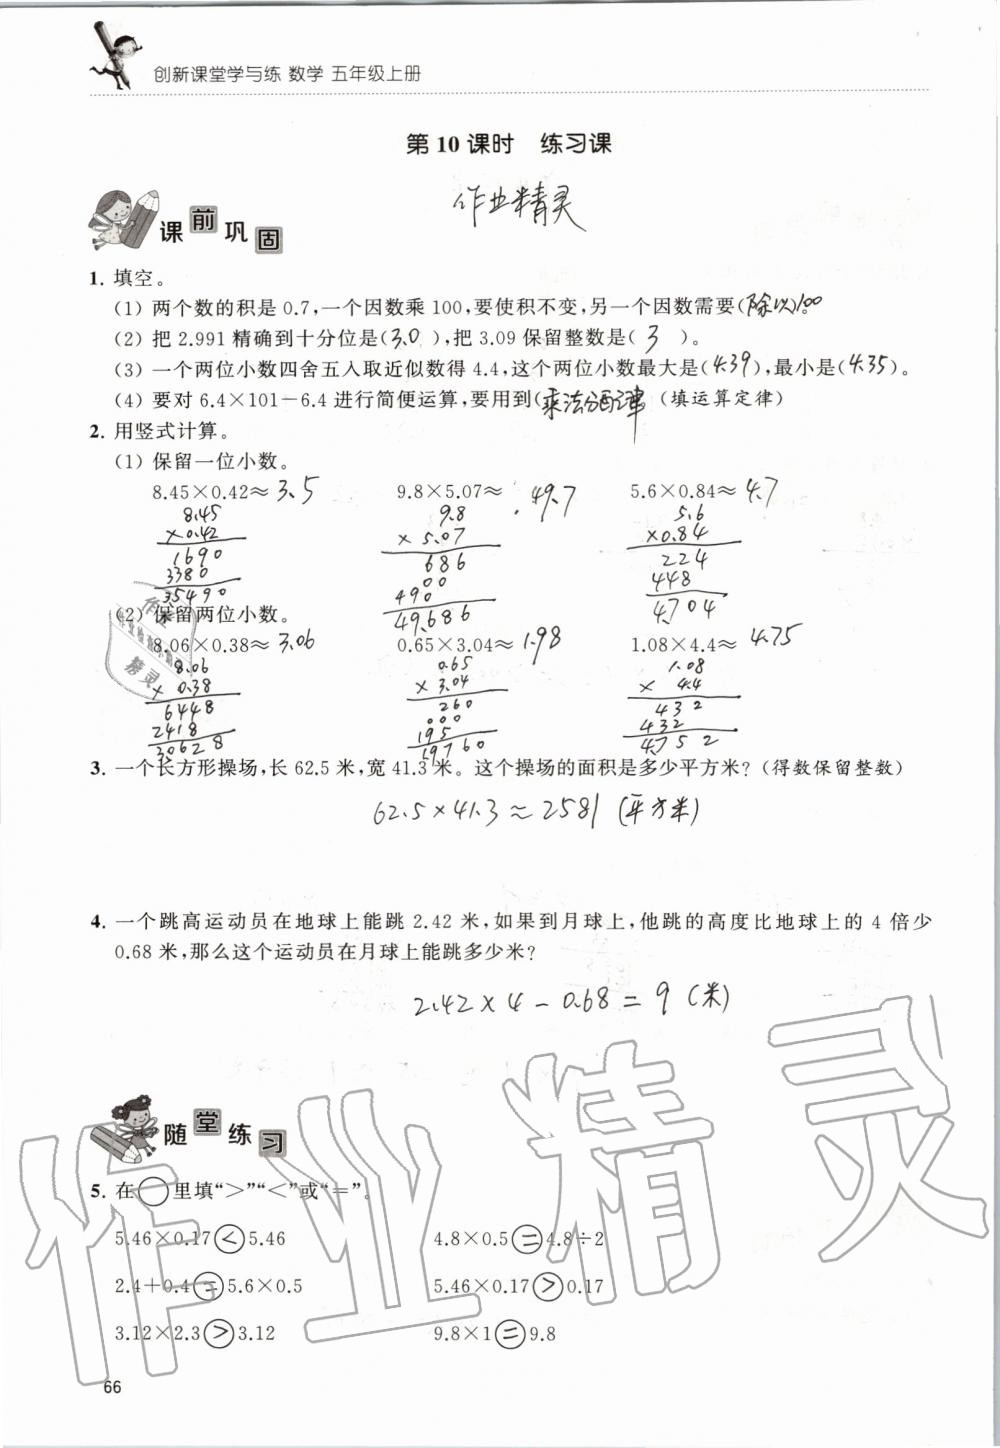 创新课堂学与练 数学 五年级上册
第 10 课时　练习课
作业精灵
课前巩固
1. 填空。
(1) 两个数的积是 0.7,一个因数乘 100,要使积不变,另一个因数需要(除以100
(2) 把 2.991 精确到十分位是(3.0),把 3.09 保留整数是( 3 )。
(3) 一个两位小数四舍五入取近似数得 4.4,这个两位小数最大是(4.39),最小是(4.35)。
(4) 要对 6.4×101－6.4 进行简便运算,要用到(乘法分配律(填运算定律)
2. 用竖式计算。
(1) 保留一位小数。
8.45×0.42≈ 3.5　9.8×5.07≈ 49.7　5.6×0.84≈ 4.7
8.45　9.8　5.6
×0.42　× 5.07　×0.84
1690　686　224
3380　00　448
35490　490　4704
49.686
(2) 保留两位小数。
8.06×0.38≈ 3.06　0.65×3.04≈ 1.98　1.08×4.4≈ 4.75
8.06　0.65　1.08
× 0.38　× 3.04　× 4.4
6448　260　432
2418　000　432
30628　195　4.752
19760
3. 一个长方形操场,长 62.5 米,宽 41.3 米。这个操场的面积是多少平方米?(得数保留整数)
62.5×41.3≈2581 (平方米)
4. 一个跳高运动员在地球上能跳 2.42 米,如果到月球上,他跳的高度比地球上的 4 倍少
0.68 米,那么这个运动员在月球上能跳多少米?
2.42×4－0.68＝9 (米)
随堂练习
5. 在○里填“＞”“＜”或“＝”。
5.46×0.17＜5.46　4.8×0.5＝4.8÷2
2.4＋0.4＝5.6×0.5　5.46×0.17＞0.17
3.12×2.3＞3.12　9.8×1＝9.8
66
作业精灵